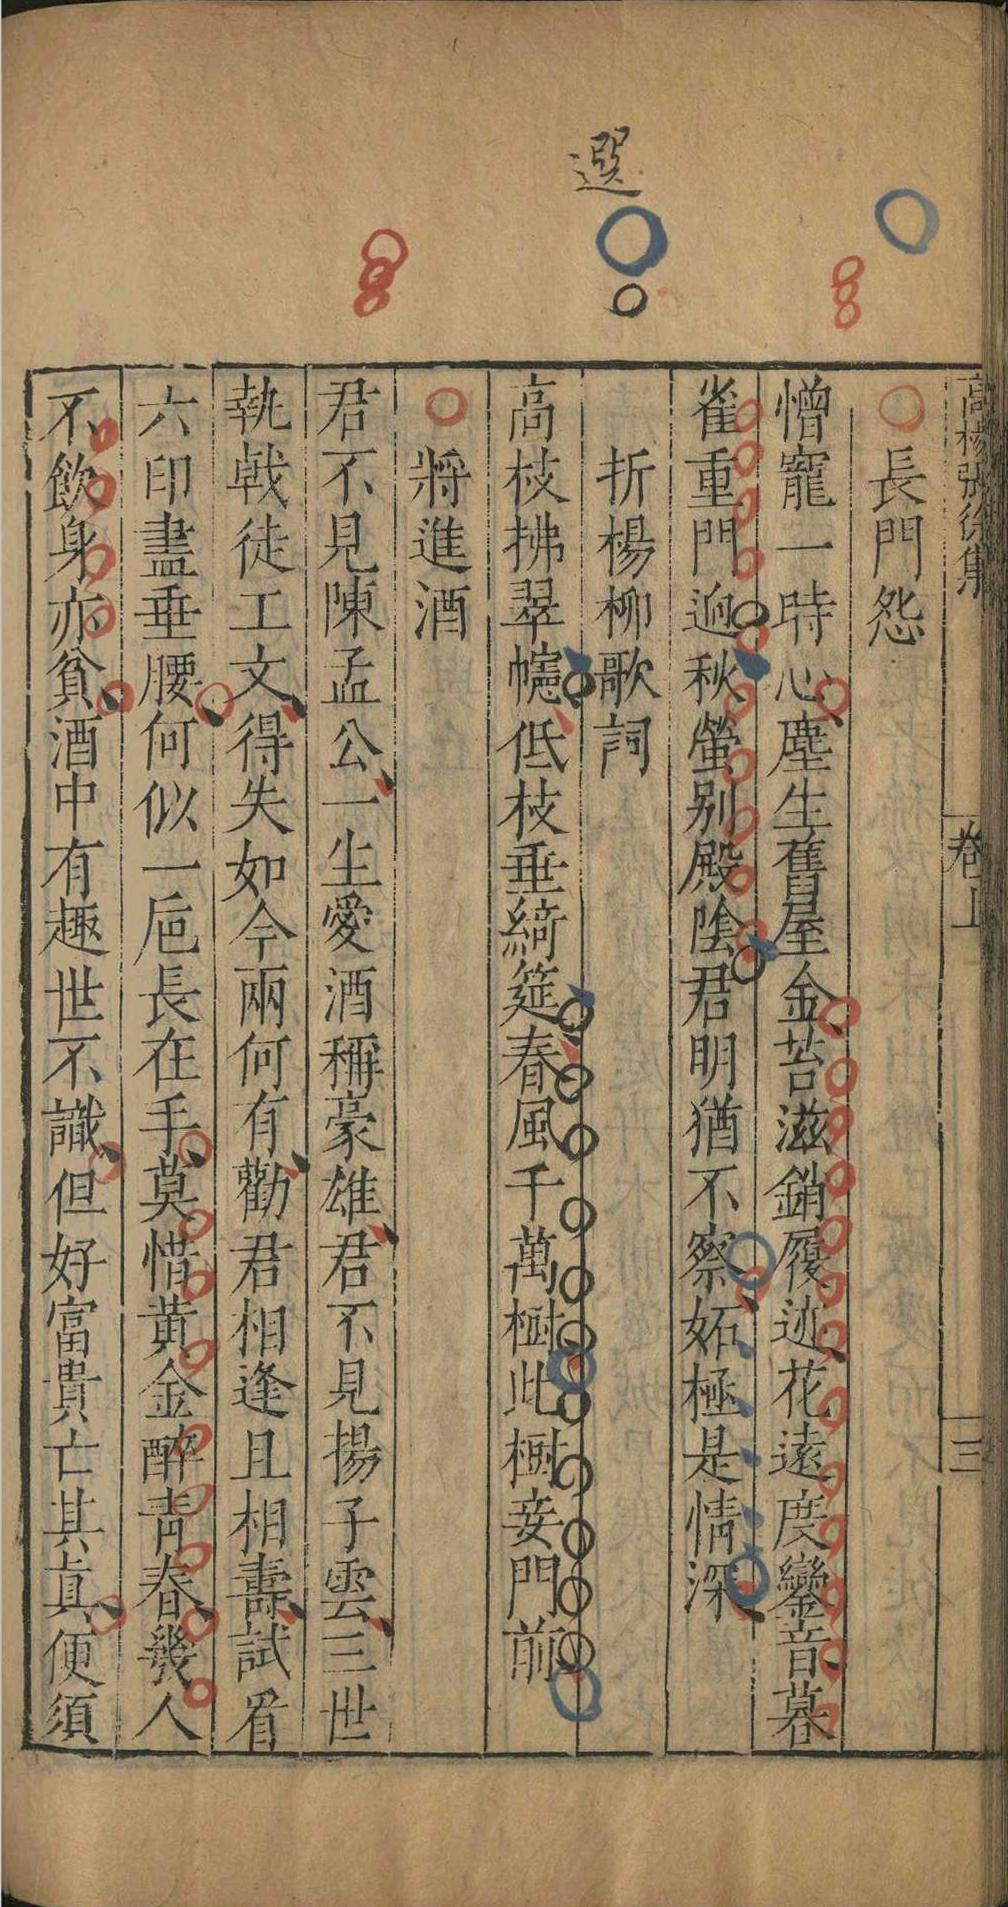 選
高楊張徐集
卷上
三
長門怨
憎寵一時心塵生舊屋金苔滋銷履迹花遠度鑾音暮
雀重門逈秋螢別殿陰君明猶不察妬極是情深
折楊柳歌詞
高枝拂翠幰低枝垂綺筵春風千萬樹此樹妾門前
將進酒
君不見陳孟公一生愛酒稱豪雄君不見揚子雲三世
執戟徒工文得失如今兩何有勸君相逢且相壽試看
六印盡垂腰何似一巵長在手莫惜黃金醉青春幾人
不飲身亦貧酒中有趣世不識但好富貴亡其真便須